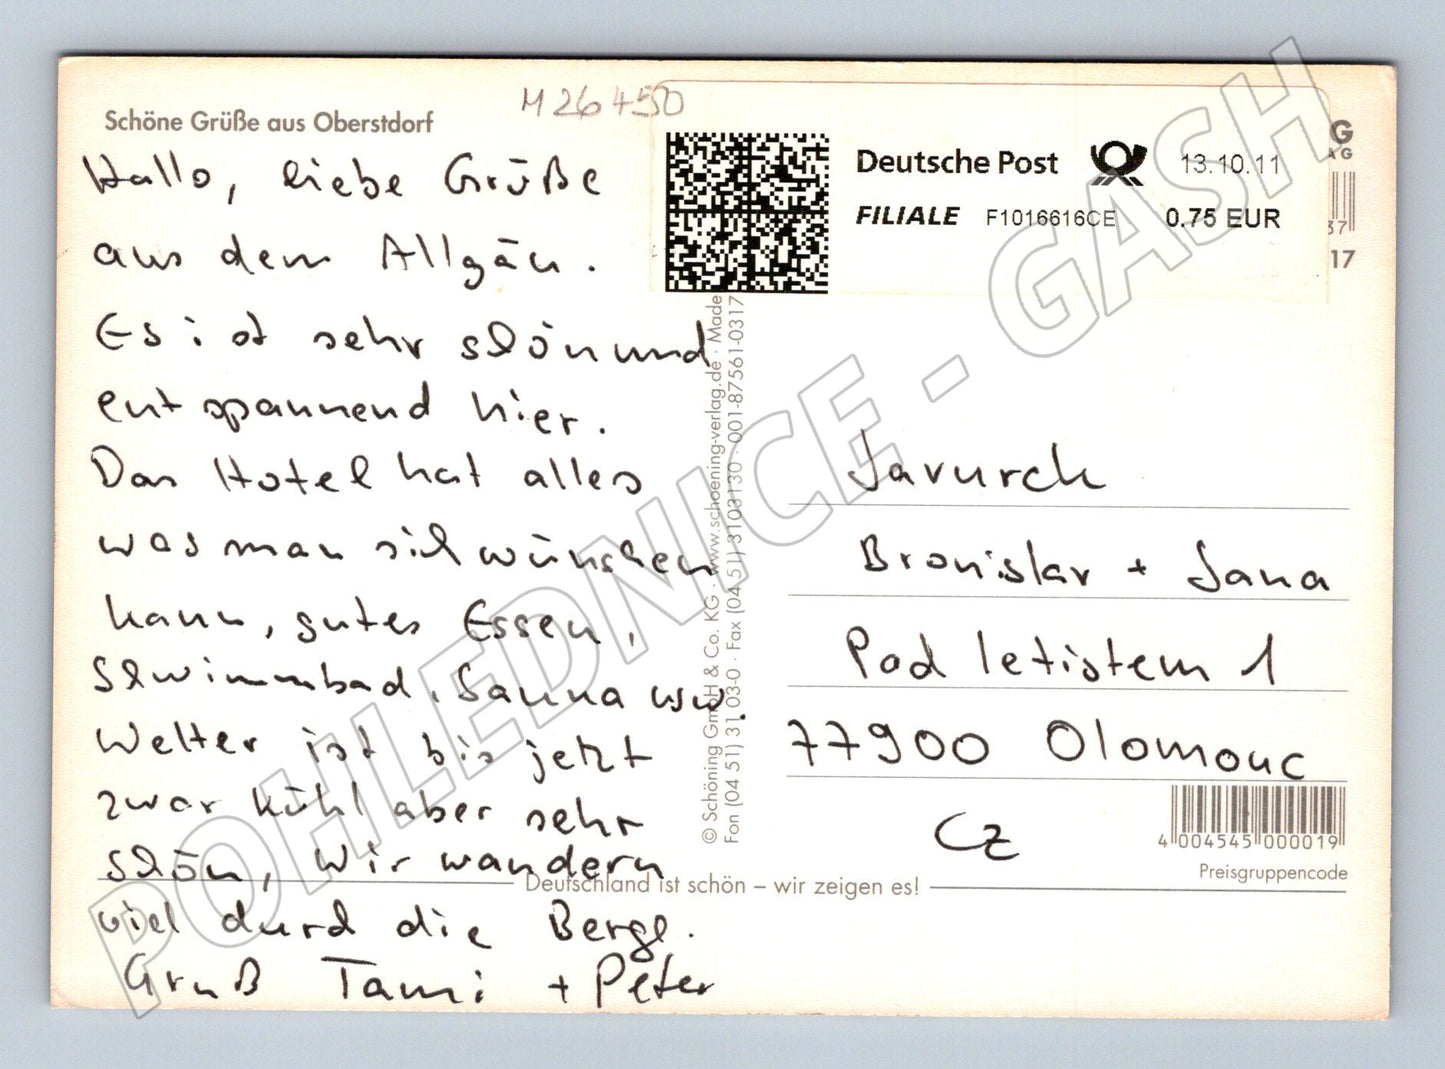 Schöne Grüße aus Oberstdorf
M 26450
Hallo, liebe Grüße
aus dem Allgäu.
Es ist sehr schön und
entspannend hier.
Das Hotel hat alles
was man sich wünschen
kann, gutes Essen,
Schwimmbad, Sauna usw.
Wetter ist bis jetzt
zwar kühl aber sehr
schön, wir wandern
viel durch die Berge.
Gruß Tami + Peter
Deutsche Post 13.10.11
FILIALE F1016616CE 0.75 EUR
G
AG
37
17
© Schöning GmbH & Co. KG · www.schoening-verlag.de · Made
Fon (04 51) 31 03-0 · Fax (04 51) 3103130 · 001-87561-0317
Javurek
Bronislav + Jana
Pod letistem 1
77900 Olomouc
CZ
4 004545 000019
Preisgruppencode
Deutschland ist schön – wir zeigen es!
POHLEDNICE - GASH